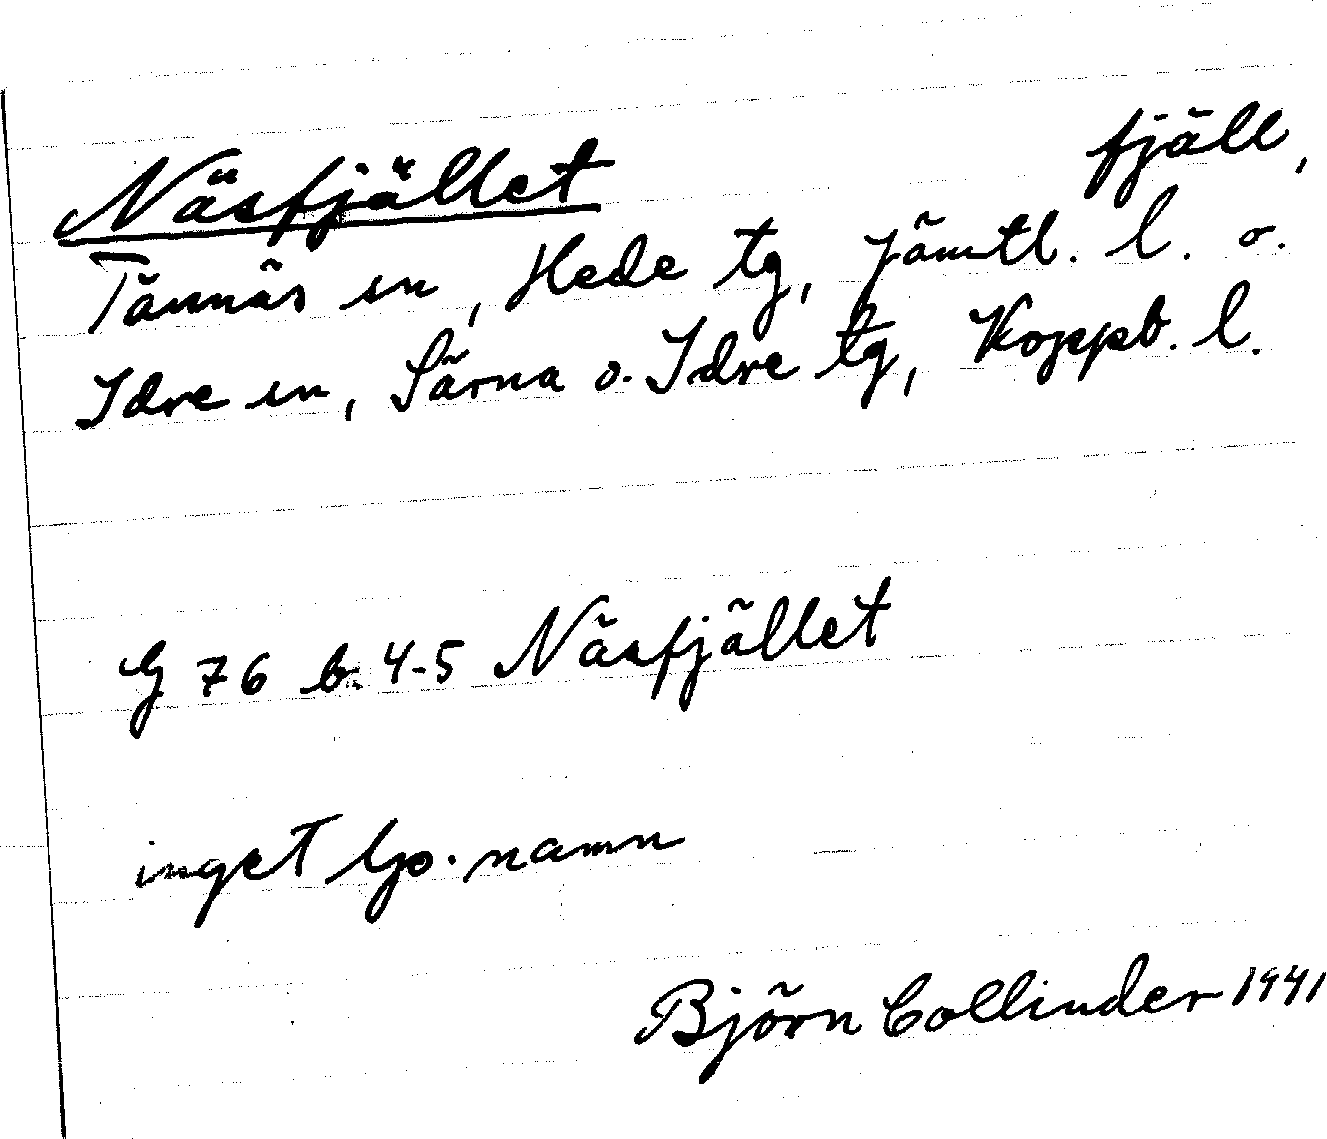 Näsfjället fjäll,
Tännäs sn, Hede tg, Jämtl. l. o.
Idre sn, Särna o. Idre tg, Koppb. l.
G 76 b. 4-5 Näsfjället
inget lp. namn
Björn Collinder 1941